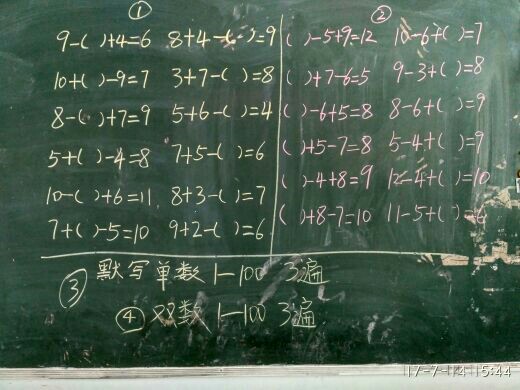 ① ②
9-( )+4=6 8+4-( )=9 ( )-5+9=12 10-6+( )=7
10+( )-9=7 3+7-( )=8 ( )+7-6=5 9-3+( )=8
8-( )+7=9 5+6-( )=4 ( )-6+5=8 8-6+( )=9
5+( )-4=8 7+5-( )=6 ( )+5-7=8 5-4+( )=9
10-( )+6=11 8+3-( )=7 ( )-4+8=9 12-4+( )=10
7+( )-5=10 9+2-( )=6 ( )+8-7=10 11-5+( )=6
③ 默写单数1-100 3遍
④ 双数1-100 3遍
17-7-14 15:44